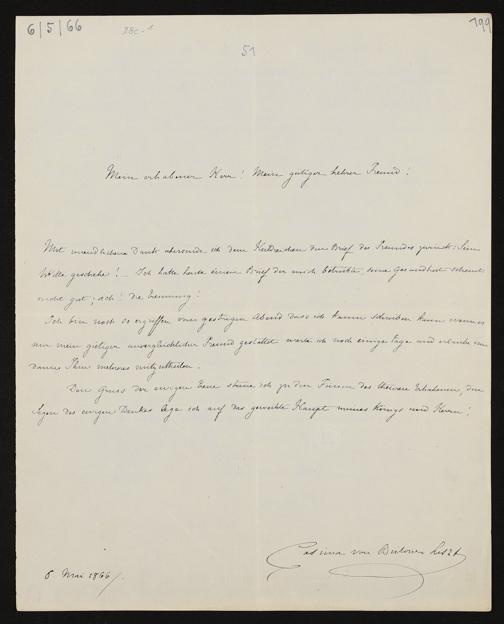 6/5/66
51
199
Mein erhabener Herr! Mein gütiger hehrer Freund!
Mit unendlichem Dank übersende ich dem Huldreichen den Brief des Freundes zurück: Sein
Wille geschehe! – Ich hatte heute einen Brief der mich betrübte, seine Gesundheit scheint
nicht gut; ach! die Trennung!
Ich bin noch so ergriffen vom gestrigen Abend dass ich kaum schreiben kann wenn es
mir mein gütiger unvergleichlicher Freund gestattet warte ich noch einige Tage und erlaube mir
dann Ihm mehreres mitzutheilen.
Den Gruss der ewigen Treue ich zu den Füssen des theuren Erhabenen, den
Segen des ewigen Dankes lege ich auf das geweihte Haupt meines Königs und Herrn!
Cosima von Bülow Liszt
6 Mai 1866/.